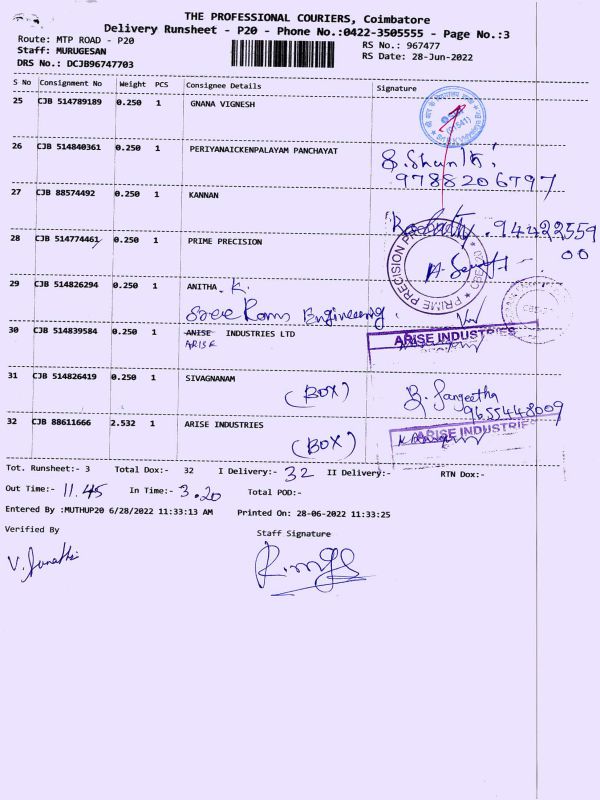 THE PROFESSIONAL COURIERS, Coimbatore
Delivery Runsheet - P20 - Phone No.:0422-3505555 - Page No.:3
Route: MTP ROAD - P20
RS No.: 967477
Staff: MURUGESAN
RS Date: 28-Jun-2022
DRS No.: DCJB96747703
S No Consignment No Weight PCS Consignee Details Signature
25 CJB 514789189 0.250 1 GNANA VIGNESH
26 CJB 514840361 0.250 1 PERIYANAICKENPALAYAM PANCHAYAT
9788206797
27 CJB 88574492 0.250 1 KANNAN
9442255900
28 CJB 514774461 0.250 1 PRIME PRECISION
PRIME PRECISION
29 CJB 514826294 0.250 1 ANITHA. K.
Sree Rams Engineering.
30 CJB 514839584 0.250 1 ANISE INDUSTRIES LTD
ARISE
ARISE INDUSTRIES
31 CJB 514826419 0.250 1 SIVAGNANAM
(BOX) B. Sangeetha
9655448009
32 CJB 88611666 2.532 1 ARISE INDUSTRIES
(BOX)
ARISE INDUSTRIES
Tot. Runsheet:- 3 Total Dox:- 32 I Delivery:- 32 II Delivery:- RTN Dox:-
Out Time:- 11.45 In Time:- 3.20 Total POD:-
Entered By :MUTHUP20 6/28/2022 11:33:13 AM Printed On: 28-06-2022 11:33:25
Verified By Staff Signature